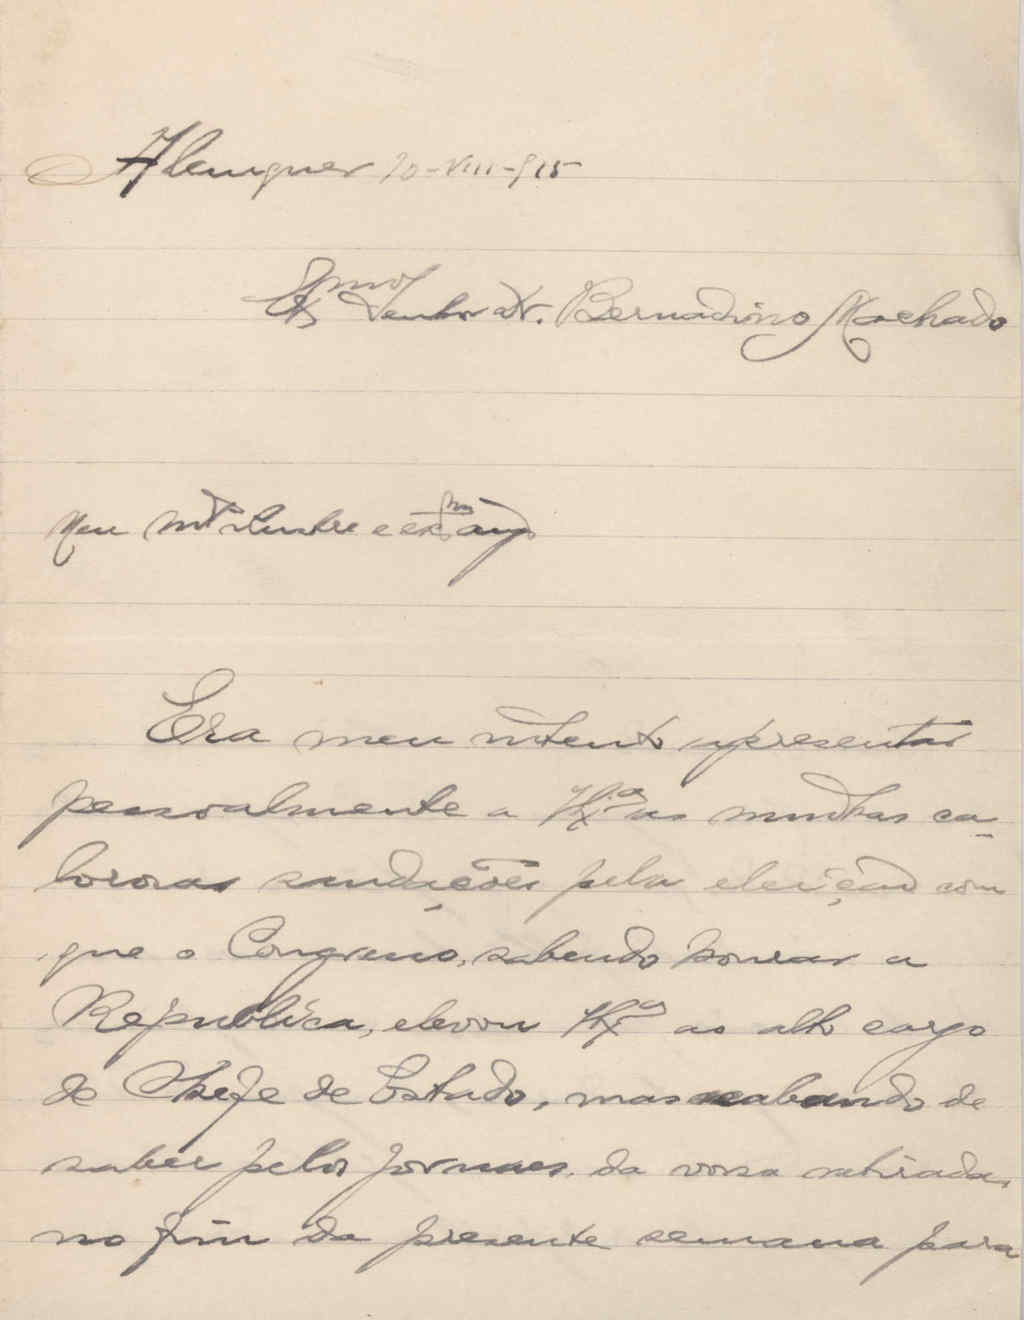 Alenquer 20-VIII-915
Exmo Senhor Dr. Bernadino Machado
Meu mto ilustre e exmo amgo
Era meu intento apresentar
pessoalmente a V. Exa as minhas ca-
lorosas saudações pela eleição com
que o Congresso, sabendo honrar a
Republica, elevou V. Exa ao alto cargo
de Chefe de Estado, mas acabando de
saber pelos jornaes, da vossa retirada,
no fim da presente semana para